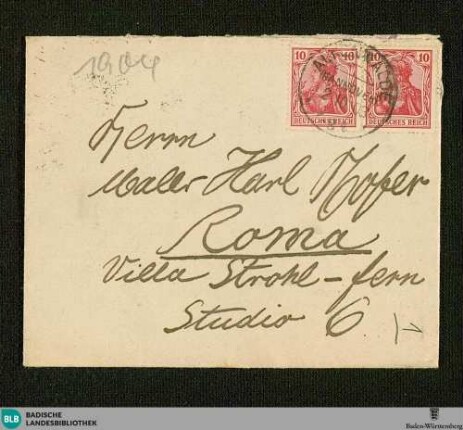 1904
10 10 10 10
DEUTSCHES REICH DEUTSCHES REICH
Herrn
Maler Karl Hofer
Roma
Villa Strohl-fern
Studio 6
1
BLB BADISCHE
LANDESBIBLIOTHEK
Baden-Württemberg